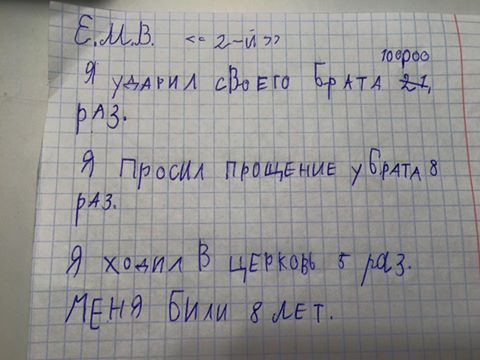 Е.М.В. << 2-й >>
100000
Я УДАРИЛ СВОЕГО БРАТА 21,
РАЗ.
Я ПРОСИЛ ПРОЩЕНИЕ У БРАТА 8
РАЗ.
Я ХОДИЛ В ЦЕРКОВЬ 5 РАЗ.
МЕНЯ БИЛИ 8 ЛЕТ.